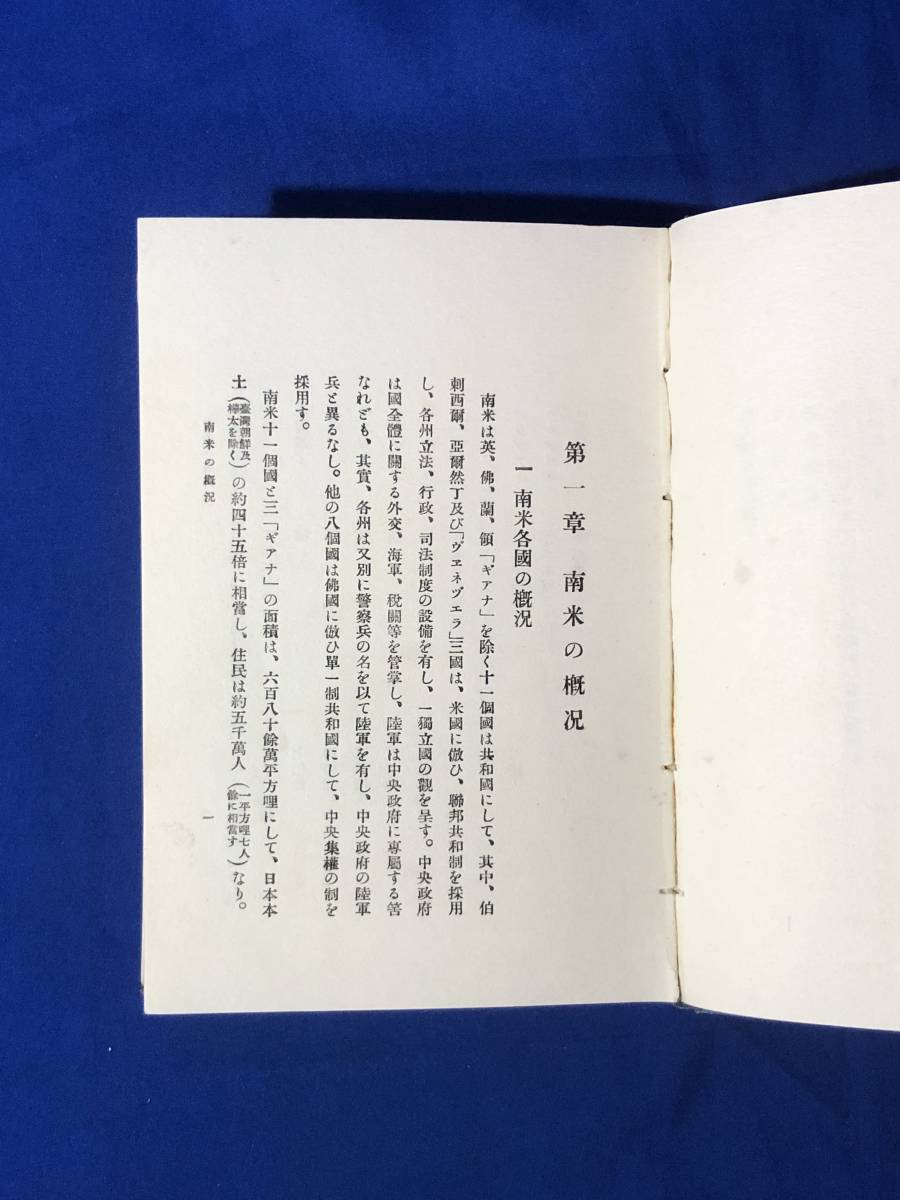 第一章　南米の概況
一　南米各國の概況
南米は英、佛、蘭、領「ギアナ」を除く十一個國は共和國にして、其中、伯
剌西爾、亞爾然丁及び「ヴエネヅエラ」三國は、米國に倣ひ、聯邦共和制を採用
し、各州立法、行政、司法制度の設備を有し、一獨立國の觀を呈す。中央政府
は國全體に關する外交、海軍、稅關等を管掌し、陸軍は中央政府に專屬する筈
なれども、其實、各州は又別に警察兵の名を以て陸軍を有し、中央政府の陸軍
兵と異るなし。他の八個國は佛國に倣ひ單一制共和國にして、中央集權の制を
採用す。
南米十一個國と三「ギアナ」の面積は、六百八十餘萬平方哩にして、日本本
土（臺灣朝鮮及樺太を除く）の約四十五倍に相當し、住民は約五千萬人（一平方哩七人餘に相當す）なり。
南米の概況
一